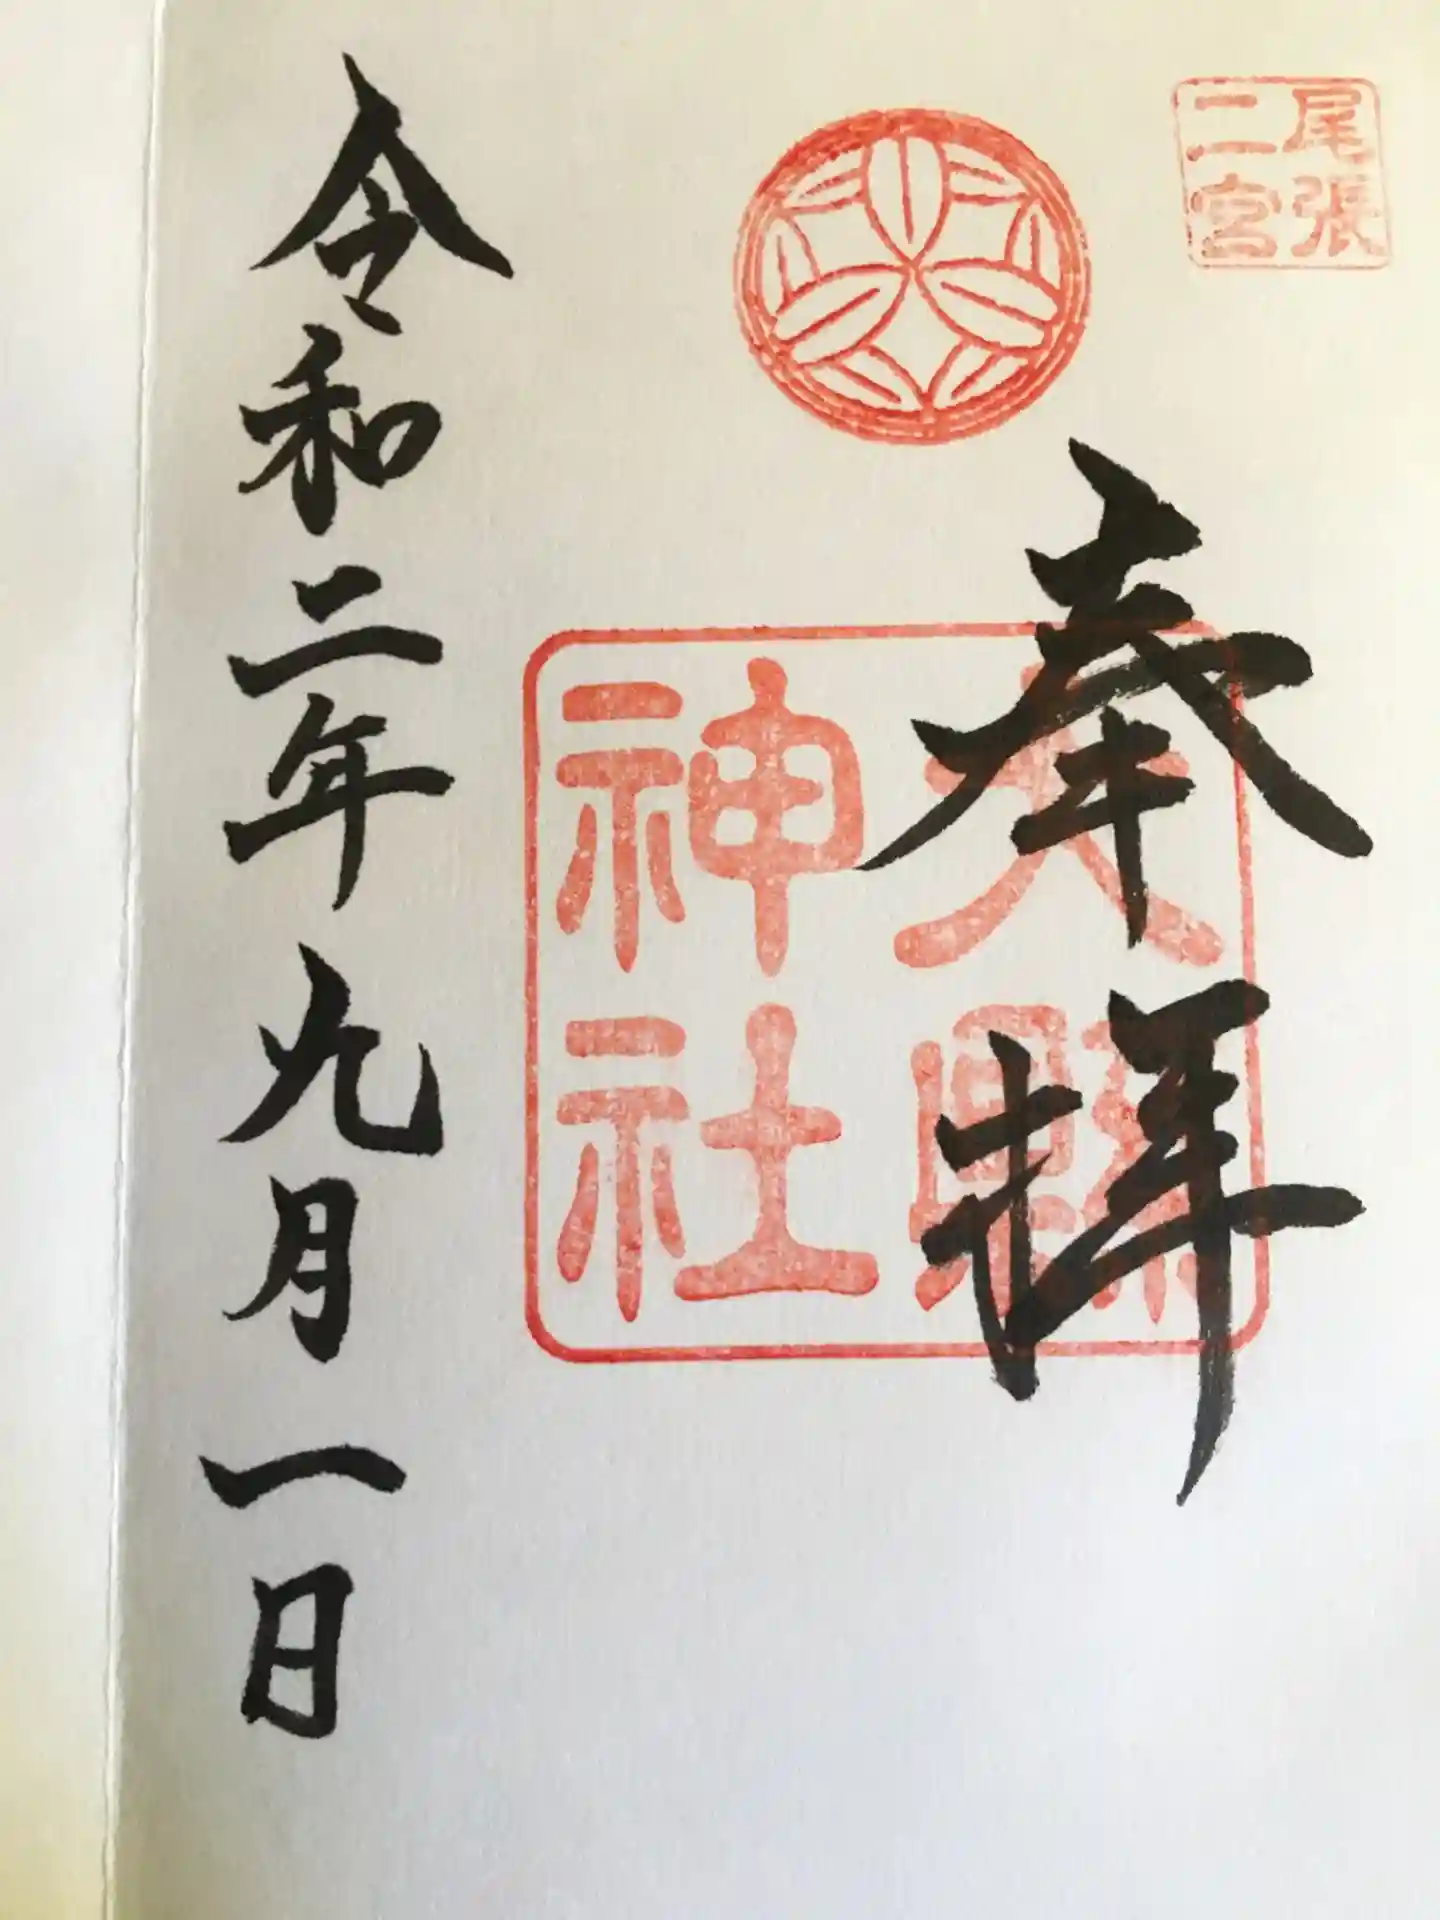 尾張
二宮
奉拝
大縣
神社
令和二年九月一日